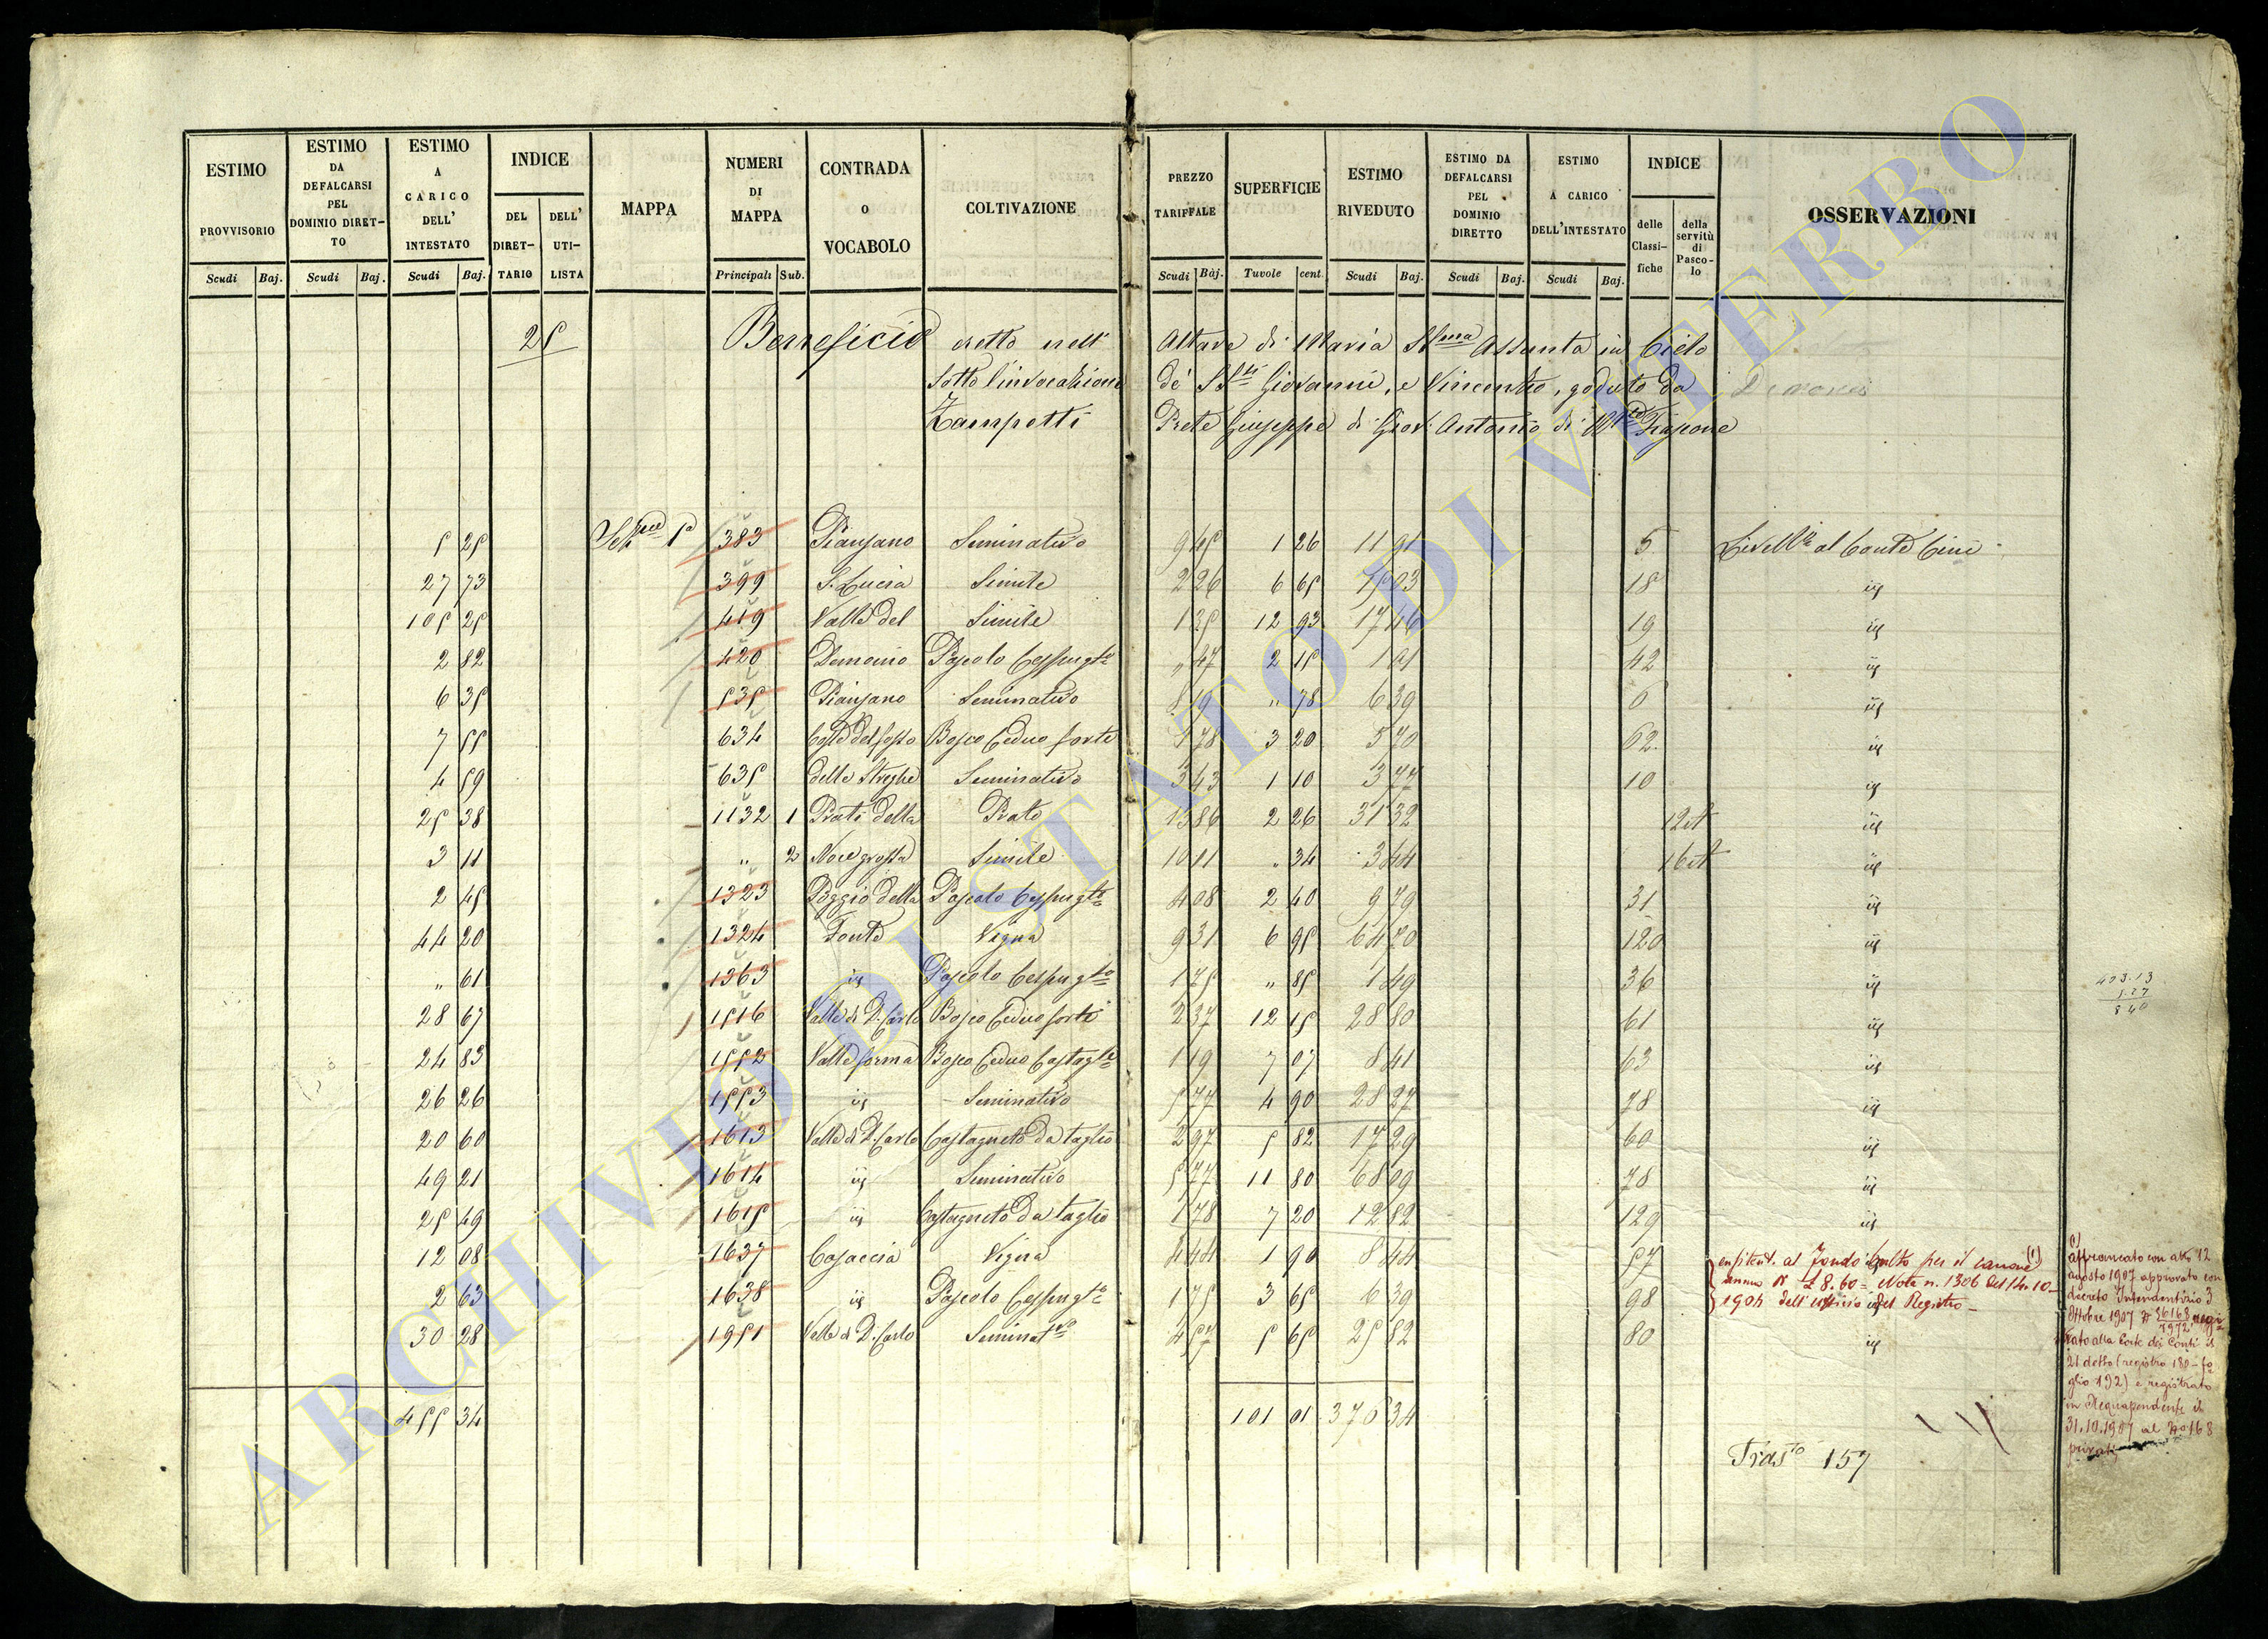 ESTIMO PROVVISORIO Scudi Baj.
ESTIMO DA DEFALCARSI PEL DOMINIO DIRET-TO Scudi Baj.
ESTIMO A CARICO DELL' INTESTATO Scudi Baj.
INDICE DEL DIRET-TARIO DELL' UTI-LISTA
MAPPA
NUMERI DI MAPPA Principali Sub.
CONTRADA o VOCABOLO
COLTIVAZIONE
PREZZO TARIFFALE Scudi Baj.
SUPERFICIE Tavole cent.
ESTIMO RIVEDUTO Scudi Baj.
ESTIMO DA DEFALCARSI PEL DOMINIO DIRETTO Scudi Baj.
ESTIMO A CARICO DELL'INTESTATO Scudi Baj.
INDICE delle Classi-fiche della servitù di Pasco-lo
OSSERVAZIONI
25 Beneficio eretto nell' Altare di Maria SSma Assunta in Cielo
sotto l'invocazione de' SSti Giovanni, e Vincenzo, goduto da
Zampetti Prete Giuseppe di Giov: Antonio di Mte Fiascone
5 25 Seze 1a 383 Pianzano Seminativo 9 45 1 26 11 91 5 Livellio al Conte Cini
27 73 399 S. Lucia Simile 2 26 6 65 15 03 18 id
105 25 419 Valle del Simile 1 35 12 93 17 46 19 id
2 82 420 Demonio Pascolo Cespugto " 47 2 15 1 01 42 id
6 35 535 Pianzano Seminativo 8 19 " 78 6 39 6 id
7 55 634 Coste del fosso Bosco Ceduo forte 1 78 3 20 5 70 62 id
4 59 635 delle Streghe Seminativo 3 43 1 10 3 77 10 id
25 38 1132 1 Prati della Prato 13 86 2 26 31 32 id
3 11 " 2 Noce grossa Simile 10 11 " 34 3 44 id
2 45 1323 Poggio della Pascolo Cespugto 4 08 2 40 9 79 31 id
44 20 1324 Fonte Vigna 9 31 6 95 64 70 120 id
" 61 1363 id Pascolo Cespugto 1 75 " 85 1 49 36 id
28 67 1516 Valle di D. Carlo Bosco Ceduo forte 2 37 12 15 28 80 61 id
24 83 1552 Valle forma Bosco Ceduo Castagte 1 19 7 07 8 41 63 id
26 26 1553 id Seminativo 5 77 4 90 28 27 78 id
20 60 1613 Valle di D. Carlo Castagneto da taglio 2 97 5 82 17 29 60 id
49 21 1614 id Seminativo 5 77 11 80 68 09 78 id
25 49 1615 id Castagneto da taglio 1 78 7 20 12 82 129 id
12 08 1637 Cajaccia Vigna 4 44 1 90 8 44 57 id
2 63 1638 id Pascolo Cespugto 1 75 3 65 6 39 98 id
30 28 1951 Valle di D. Carlo Seminatvo 4 57 5 65 25 82 80 id
enfiteut. al Fondo Culto per il canone (1)
annuo di £ 8.60 - Nota n. 1306 del 14.10-
1904 dell'ufficio del Registro -
455 34 101 01 376 34
Trasto 157
403.13
(1)
affrancato con atto 12
agosto 1907 approvato con
decreto Intendentizio 3
Ottobre 1907 N 36168/7972 regi-
strato alla Corte dei Conti il
21 detto (registro 180 - fo-
glio 192) e registrato
in Acquapendente il
31.10.1907 al No 168
privati
ARCHIVIO DI STATO DI VITERBO